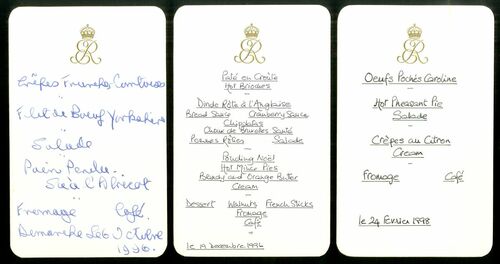 ER
Crêpes Franche Comtoise
Filet de Boeuf Yorkshire
Salade
Pain Perdu
Sauce L'Abricot
Fromage Café.
Demanche Le 6 Octobre
1996.
ER
Paté en Croûte
Hot Brioches
Dinde Rôtie à l'Anglaise
Bread Sauce Cranberry Sauce
Chipolatas
Choux de Bruxelles Sauté
Pommes Rôties Salade
Pouding Noël
Hot Mince Pies
Brandy and Orange Butter
Cream
Dessert Walnuts French Sticks
Fromage
Café
le 19 Decembre 1994
ER
Oeufs Pochés Caroline
Hot Pheasant Pie
Salade
Crêpes au Citron
Cream
Fromage Café
le 24 Fevrier 1998